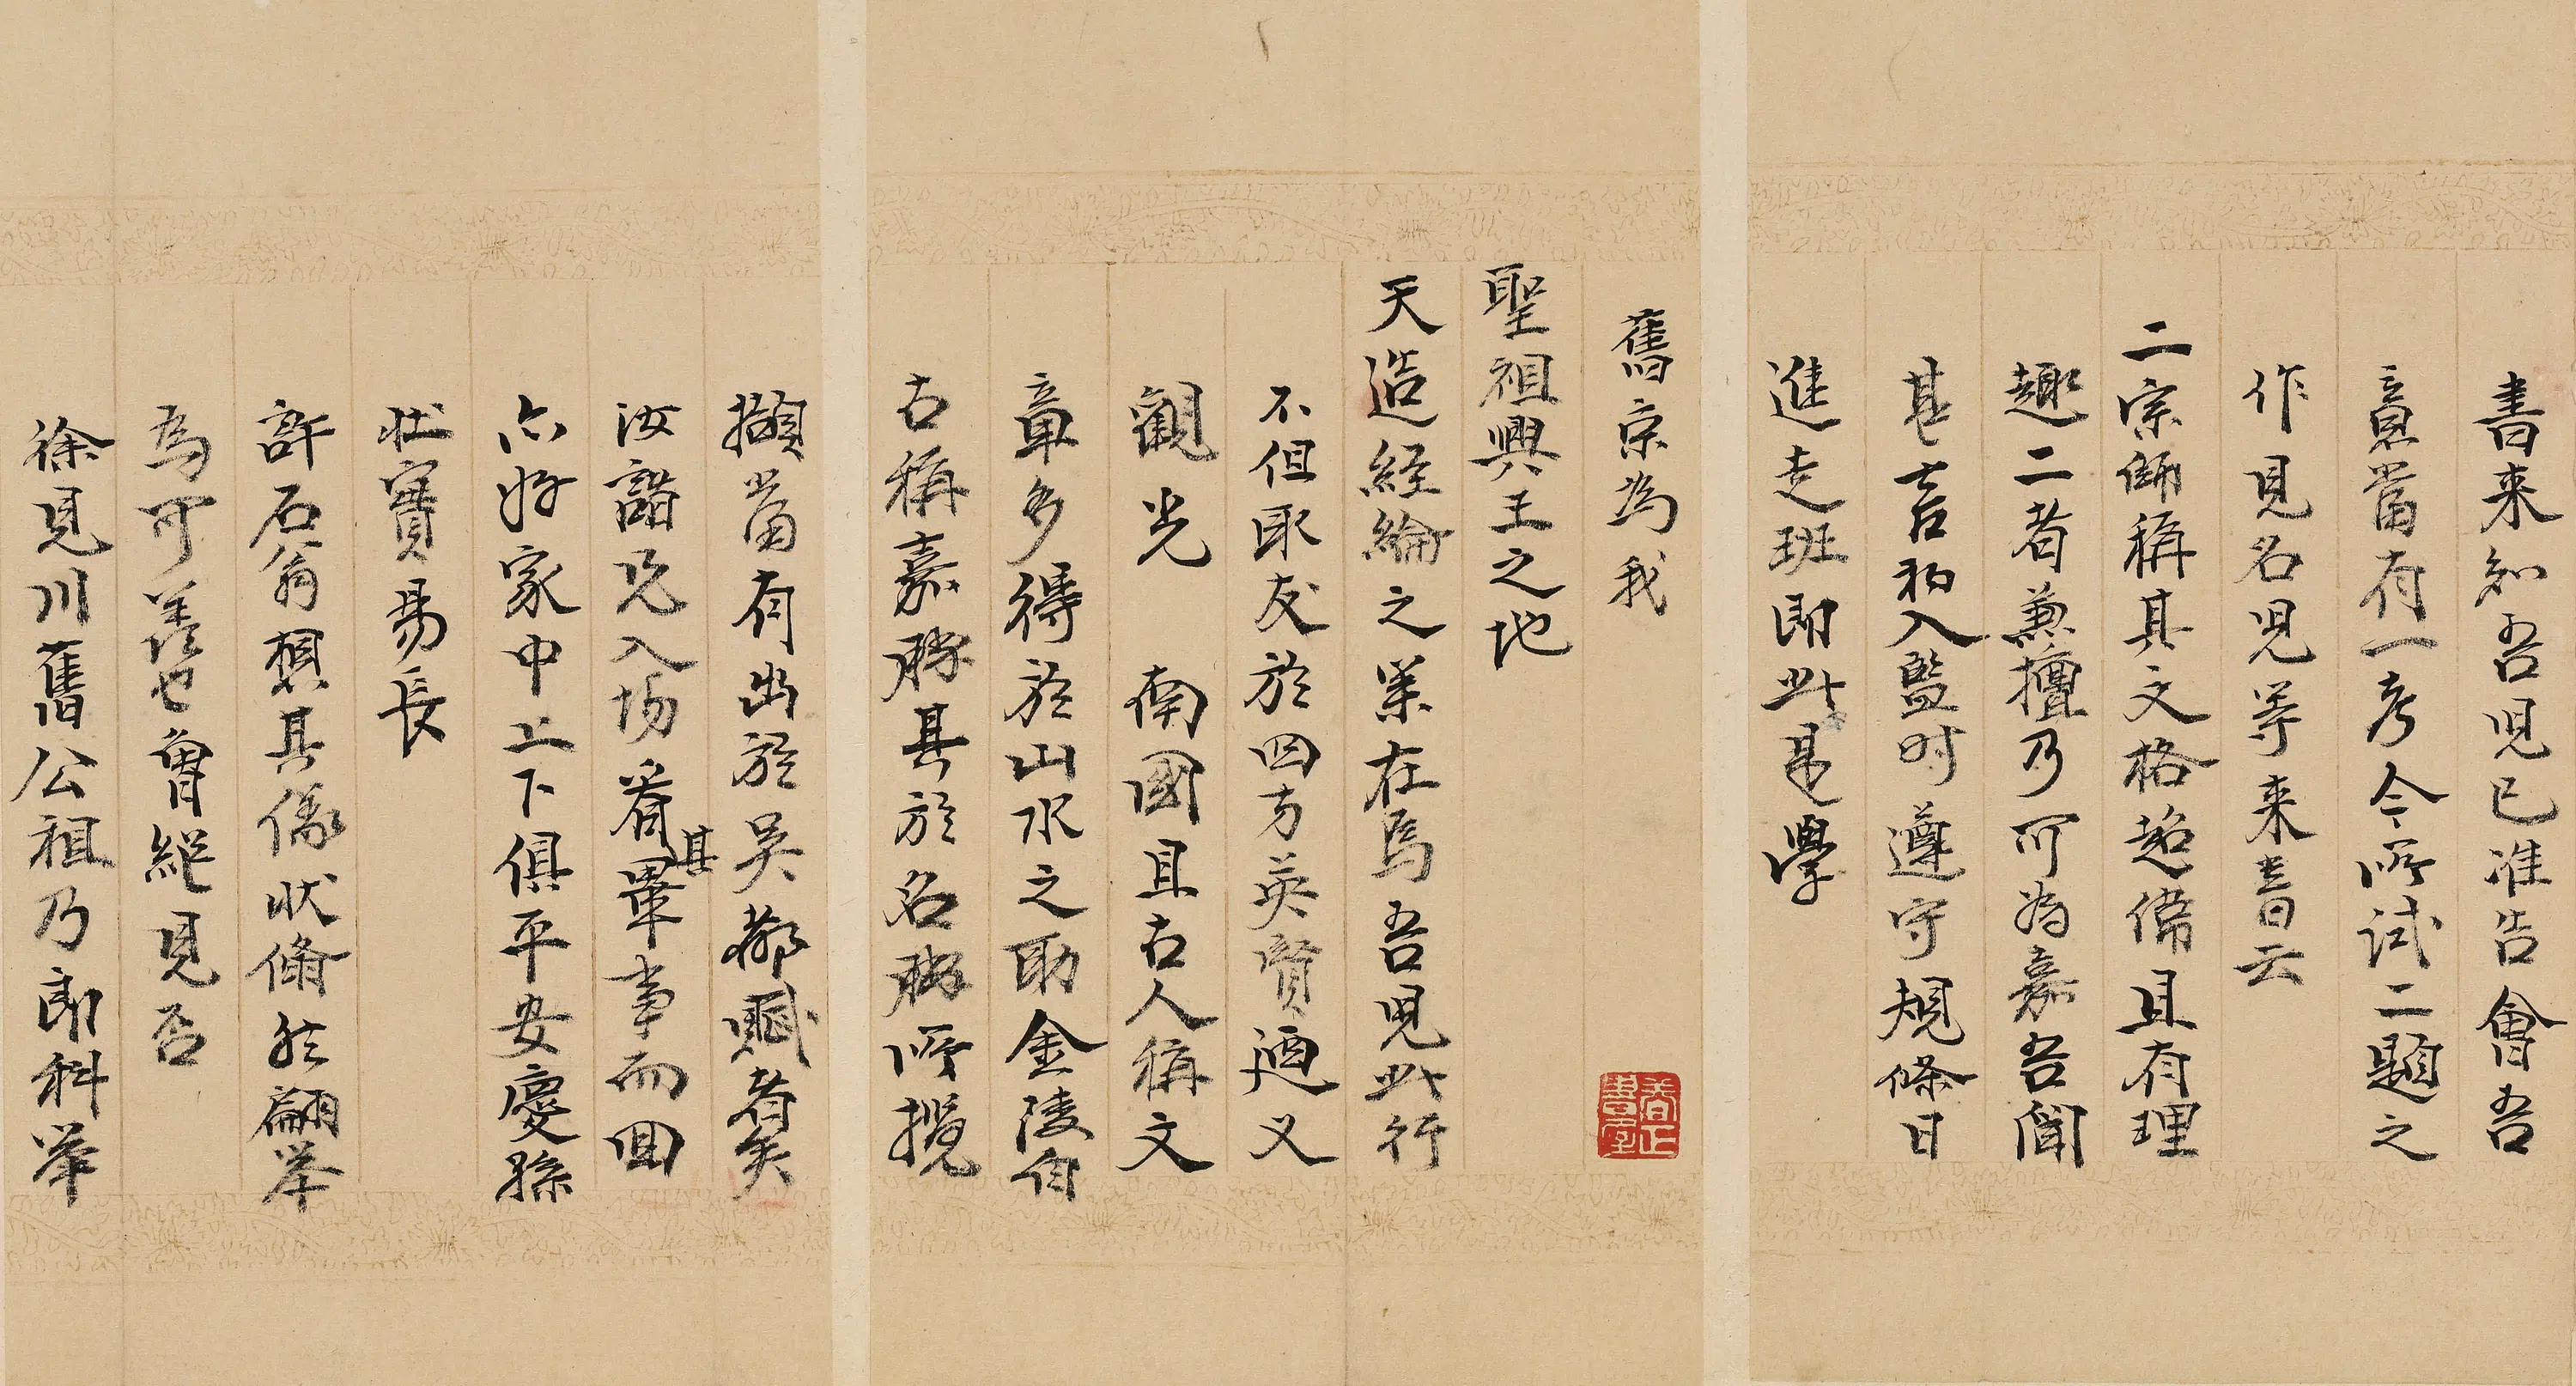 書来知吾児已准告會吾
意當有一考今所試二題之
作見名児等来書云
二宗師稱其文格超偉且有理
趣二者兼擅乃可為嘉吾聞
甚喜初入監时遵守規條日
進走班即此是學
舊京為我
聖祖興王之地
天造経綸之業在焉吾児此行
不但取友於四方英賢廼又
觀光南國且古人稱文
章多得於山水之助金陵自
古稱嘉勝其於名勝所攬
擷當有出於吴都賦者矣
汝諧児入場看其畢事而回
亦好家中上下俱平安慶孫
壮實易長
許石翁想其儀状脩然翩举
為可羡也曾終見否
徐見川舊公祖乃郎科举